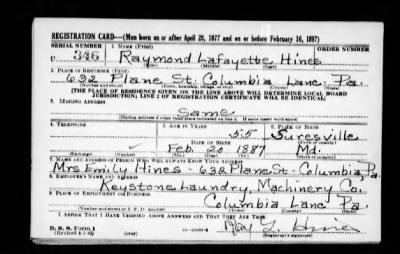 REGISTRATION CARD—(Men born on or after April 28, 1877 and on or before February 16, 1897)
SERIAL NUMBER 1. NAME (Print) ORDER NUMBER
U 346 Raymond Lafayette Hines
(First) (Middle) (Last)
2. PLACE OF RESIDENCE (Print)
632 Plane St. Columbia Lanc. Pa.
(Number and street) (Town, township, village, or city) (County) (State)
[THE PLACE OF RESIDENCE GIVEN ON THE LINE ABOVE WILL DETERMINE LOCAL BOARD
JURISDICTION; LINE 2 OF REGISTRATION CERTIFICATE WILL BE IDENTICAL]
3. MAILING ADDRESS
Same
[Mailing address if other than place indicated on line 2. If same insert word same]
4. TELEPHONE 5. AGE IN YEARS 6. PLACE OF BIRTH
55 Suresville
DATE OF BIRTH (Town or county)
Feb. 20 1887 Md.
(Exchange) (Number) (Mo.) (Day) (Yr.) (State or country)
7. NAME AND ADDRESS OF PERSON WHO WILL ALWAYS KNOW YOUR ADDRESS
Mrs Emily Hines - 632 Plane St - Columbia, Pa.
8. EMPLOYER'S NAME AND ADDRESS
Keystone Laundry Machinery Co.
9. PLACE OF EMPLOYMENT OR BUSINESS
Columbia Lanc Pa.
(Number and street or R. F. D. number) (Town) (County) (State)
I AFFIRM THAT I HAVE VERIFIED ABOVE ANSWERS AND THAT THEY ARE TRUE.
D. S. S. Form 1
Ray L. Hines
(Registrant's signature)